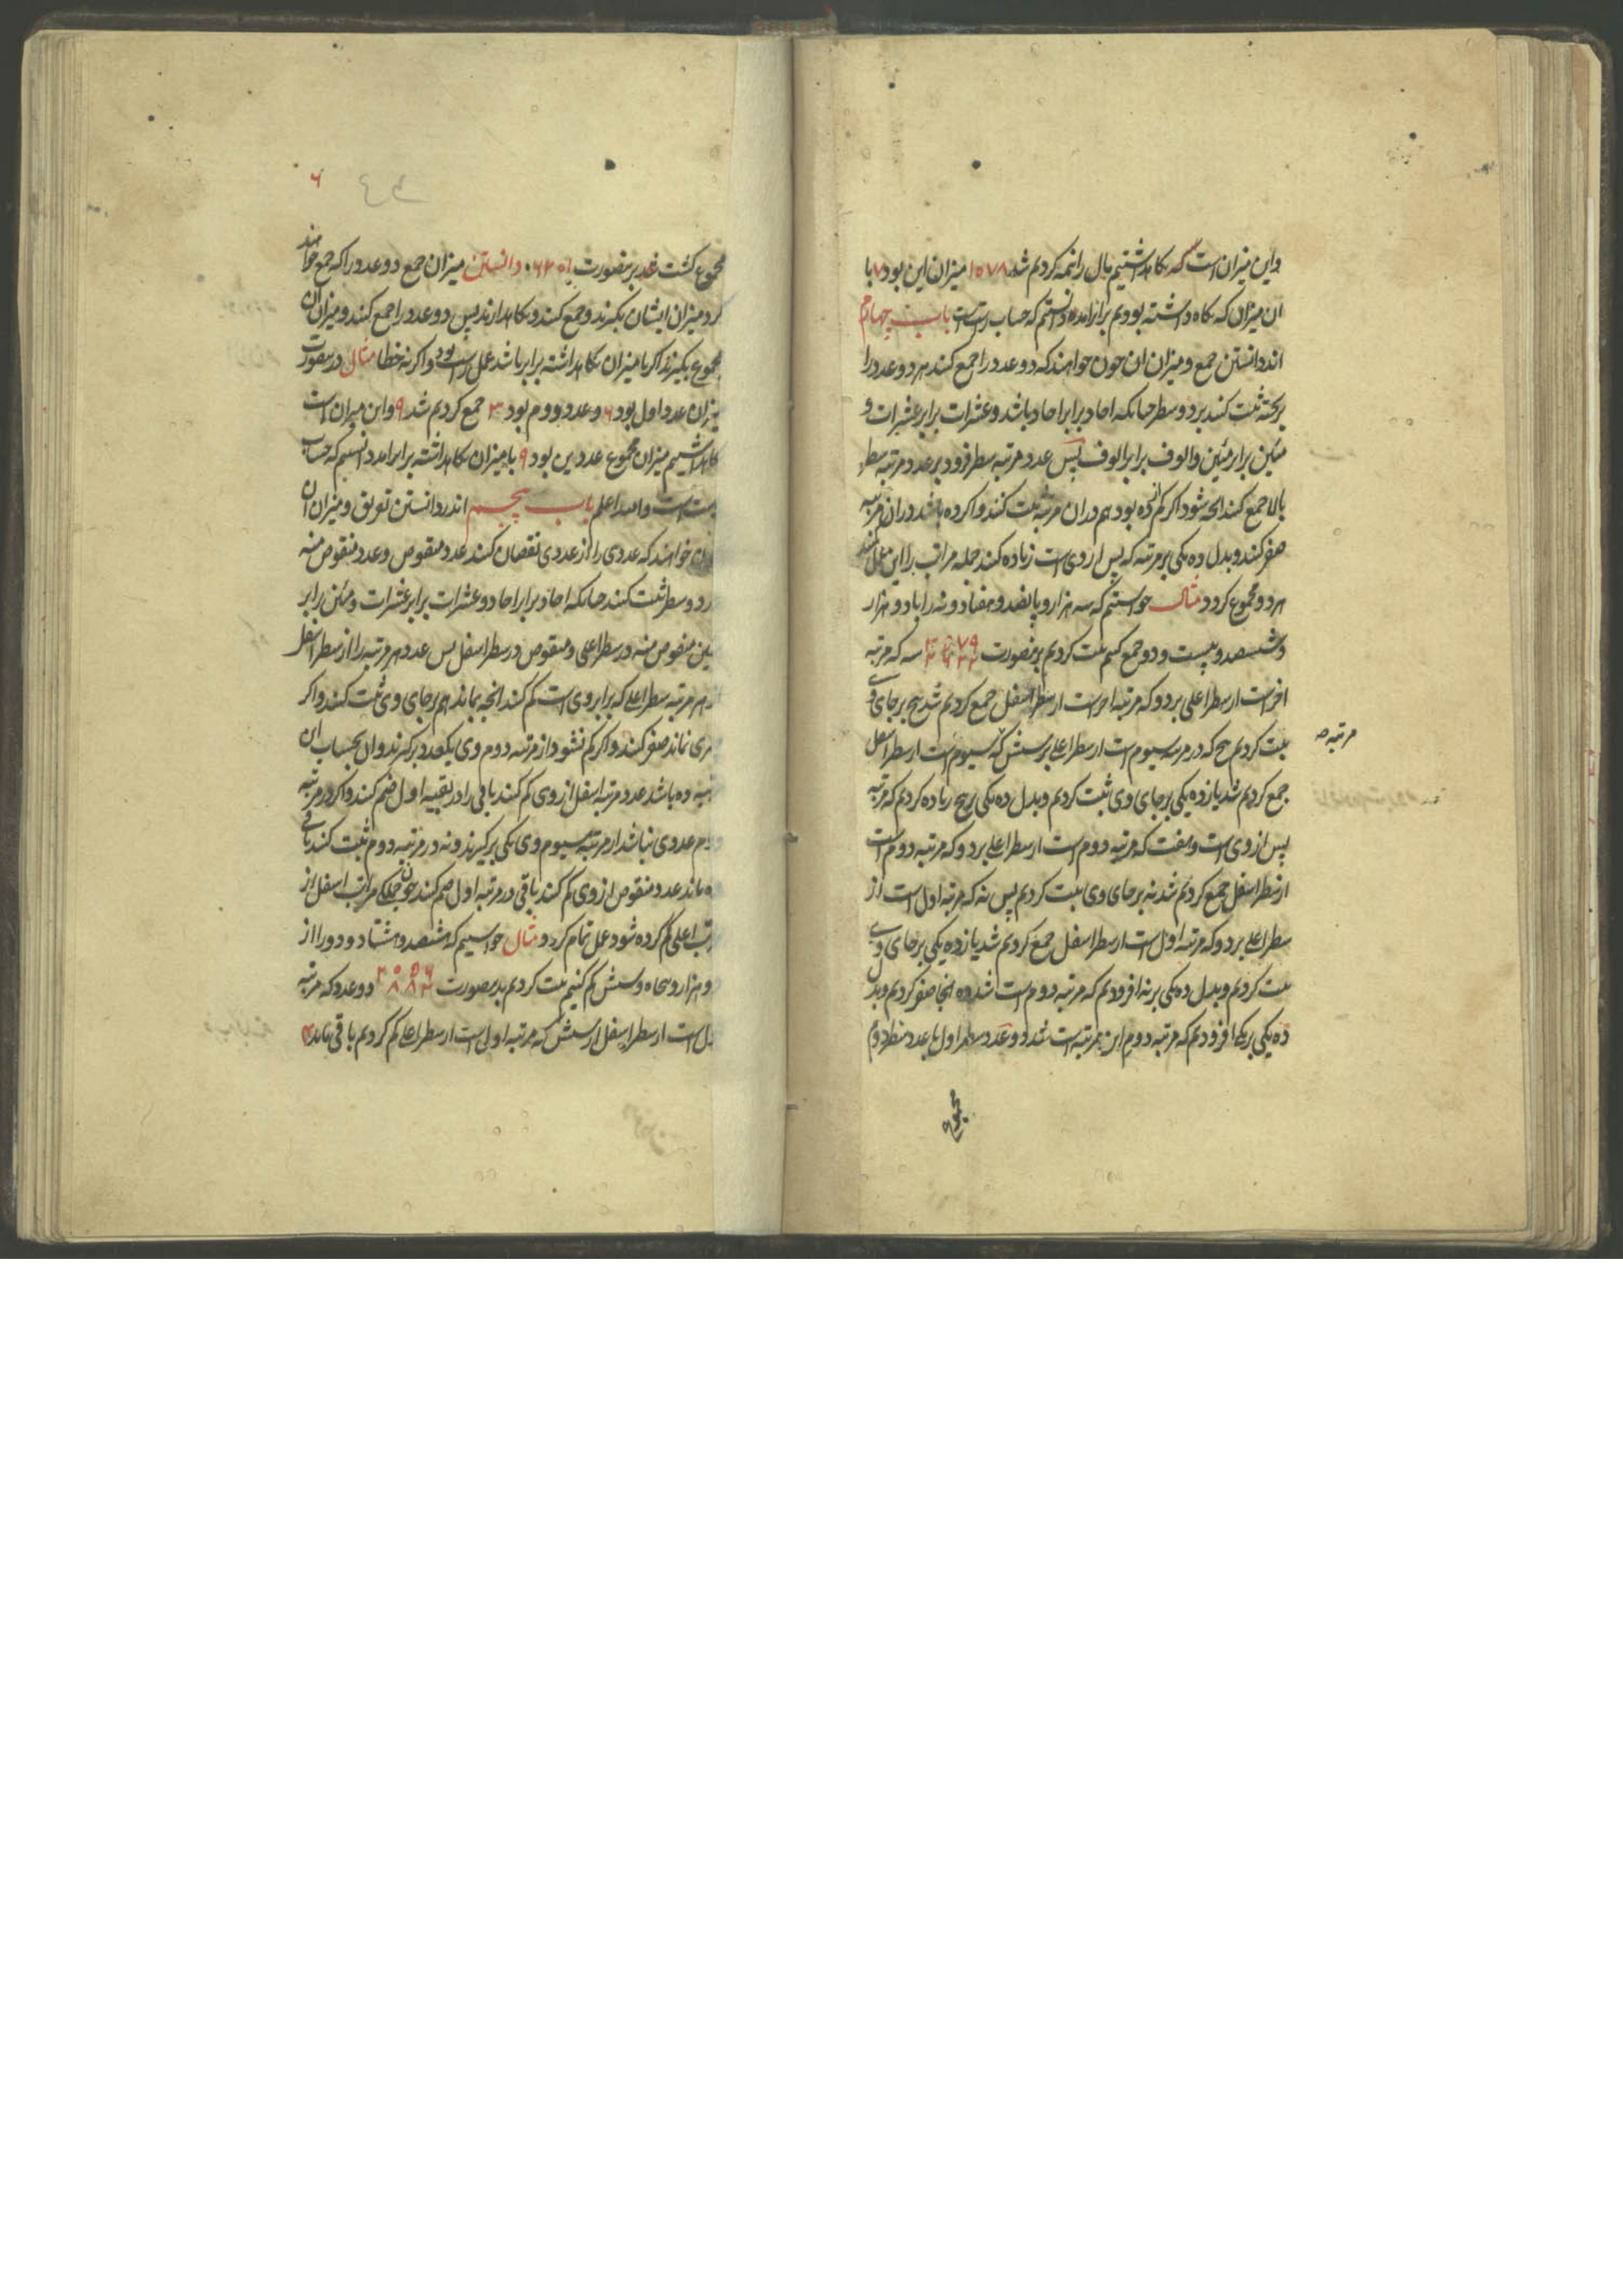 واین میزان است که نکاهداشتیم بال را نیمه کردیم شد ۱۵۷۸ میزان این بود ۷ با
ان میزان که نکاه داشته بودیم برابر امد دانستیم که حساب راست است باب چهارم
اندر دانستن جمع و میزان ان چون خواهند که دو عدد را جمع کنند هر دو عدد را
بر تخته ثبت کنند بر دو سطر چنانکه احاد برابر احاد باشد و عشرات برابر عشرات و
مئین برابر مئین و الوف برابر الوف پس عدد مرتبه سطر فرود بر عدد مرتبه سطر
بالا جمع کنند انچه شود اکر کم از ده بود هم در ان مرتبه ثبت کنند و اکر ده باشد در ان مرتبه
صفر کنند و بدل ده یکی بر مرتبه که پس از وی است زیاده کنند جمله مراتب را این عمل کنند
هر دو مجموع کردد مثال خواستیم که سه هزار و پانصد و هفتاد و نه را با دو هزار
و ششصد و بیست و دو جمع کنیم ثبت کردیم برینصورت ۳۵۷۹ ۲۶۲۲ سه که مرتبه
اخر است از سطر اعلی بر دو که مرتبه اخر است از سطر اسفل جمع کردیم شد پنج بر جای وی
ثبت کردیم پنج که در مرتبه سیوم است از سطر اعلی بر شش که سیوم است از سطر اسفل
مرتبه صه
جمع کردیم شد یازده یکی بر جای وی ثبت کردیم و بدل ده یکی بر پنج زیاده کردیم که مرتبه
پس از وی است و هفت که مرتبه دوم است از سطر اعلی بر دو که مرتبه دوم است
از سطر اسفل جمع کردیم شد نه بر جای وی ثبت کردیم پس نه که مرتبه اول است از
سطر اعلی بر دو که مرتبه اول است از سطر اسفل جمع کردیم شد یازده یکی بر جای وی
ثبت کردیم و بدل ده یکی بر نه افزودیم که مرتبه دوم است شد ده انجا صفر کردیم و بدل
ده یکی بر یکی افزودیم که مرتبه دوم این مرتبه است شد دو عدد سطر اول با عدد سطر دوم
مجموع
۶
مجموع کشت برینصورت ۶۲۰۱ دانستن میزان جمع دو عدد را که جمع خواهند
کرد میزان ایشان بکیرند و جمع کنند و نکاهدارند پس دو عدد را جمع کنند و میزان ان
مجموع بکیرند اکر با میزان نکاهداشته برابر باشد عمل راست بود و اکر نه خطا مثال درینصورت
میزان عدد اول بود ۶ و عدد دوم بود ۳ جمع کردیم شد ۹ و این میزان است
نکاهداشتیم میزان مجموع عددین بود ۹ با میزان نکاهداشته برابر امد دانستیم که حساب
راست است والله اعلم باب پنجم اندر دانستن تفریق و میزان ان
چون خواهند که عددی را از عددی نقصان کنند عدد منقوص و عدد منقوص منه
بر دو سطر ثبت کنند چنانکه احاد برابر احاد و عشرات برابر عشرات و مئین برابر
مئین منقوص منه در سطر اعلی و منقوص در سطر اسفل پس عدد هر مرتبه را از سطر اسفل
از هر مرتبه سطر اعلی که برابر وی است کم کنند انچه بماند هم بر جای وی ثبت کنند و اکر
چیزی نماند صفر کنند و اکر کم نشود از مرتبه دوم وی یکعدد برکیرند و ان بحساب ان
مرتبه ده باشد عدد مرتبه اسفل از وی کم کنند باقی را در بقیه اول ضم کنند و اکر در مرتبه
دوم عددی نباشد از مرتبه سیوم وی یکی برکیرند و نه در مرتبه دوم ثبت کنند باقی
ده ماند عدد منقوص از وی کم کنند باقی در مرتبه اول ضم کنند چون جمله مراتب اسفل از
مراتب اعلی کم کرده شود عمل تمام کردد مثال خواستیم که هشتصد و هشتاد و دو را از
دو هزار و پنجاه و شش کم کنیم ثبت کردیم بدینصورت ۲۰۵۶ ۸۸۲ دو عدد که مرتبه
اول است از سطر اسفل از شش که مرتبه اول است از سطر اعلی کم کردیم باقی ماند ۴